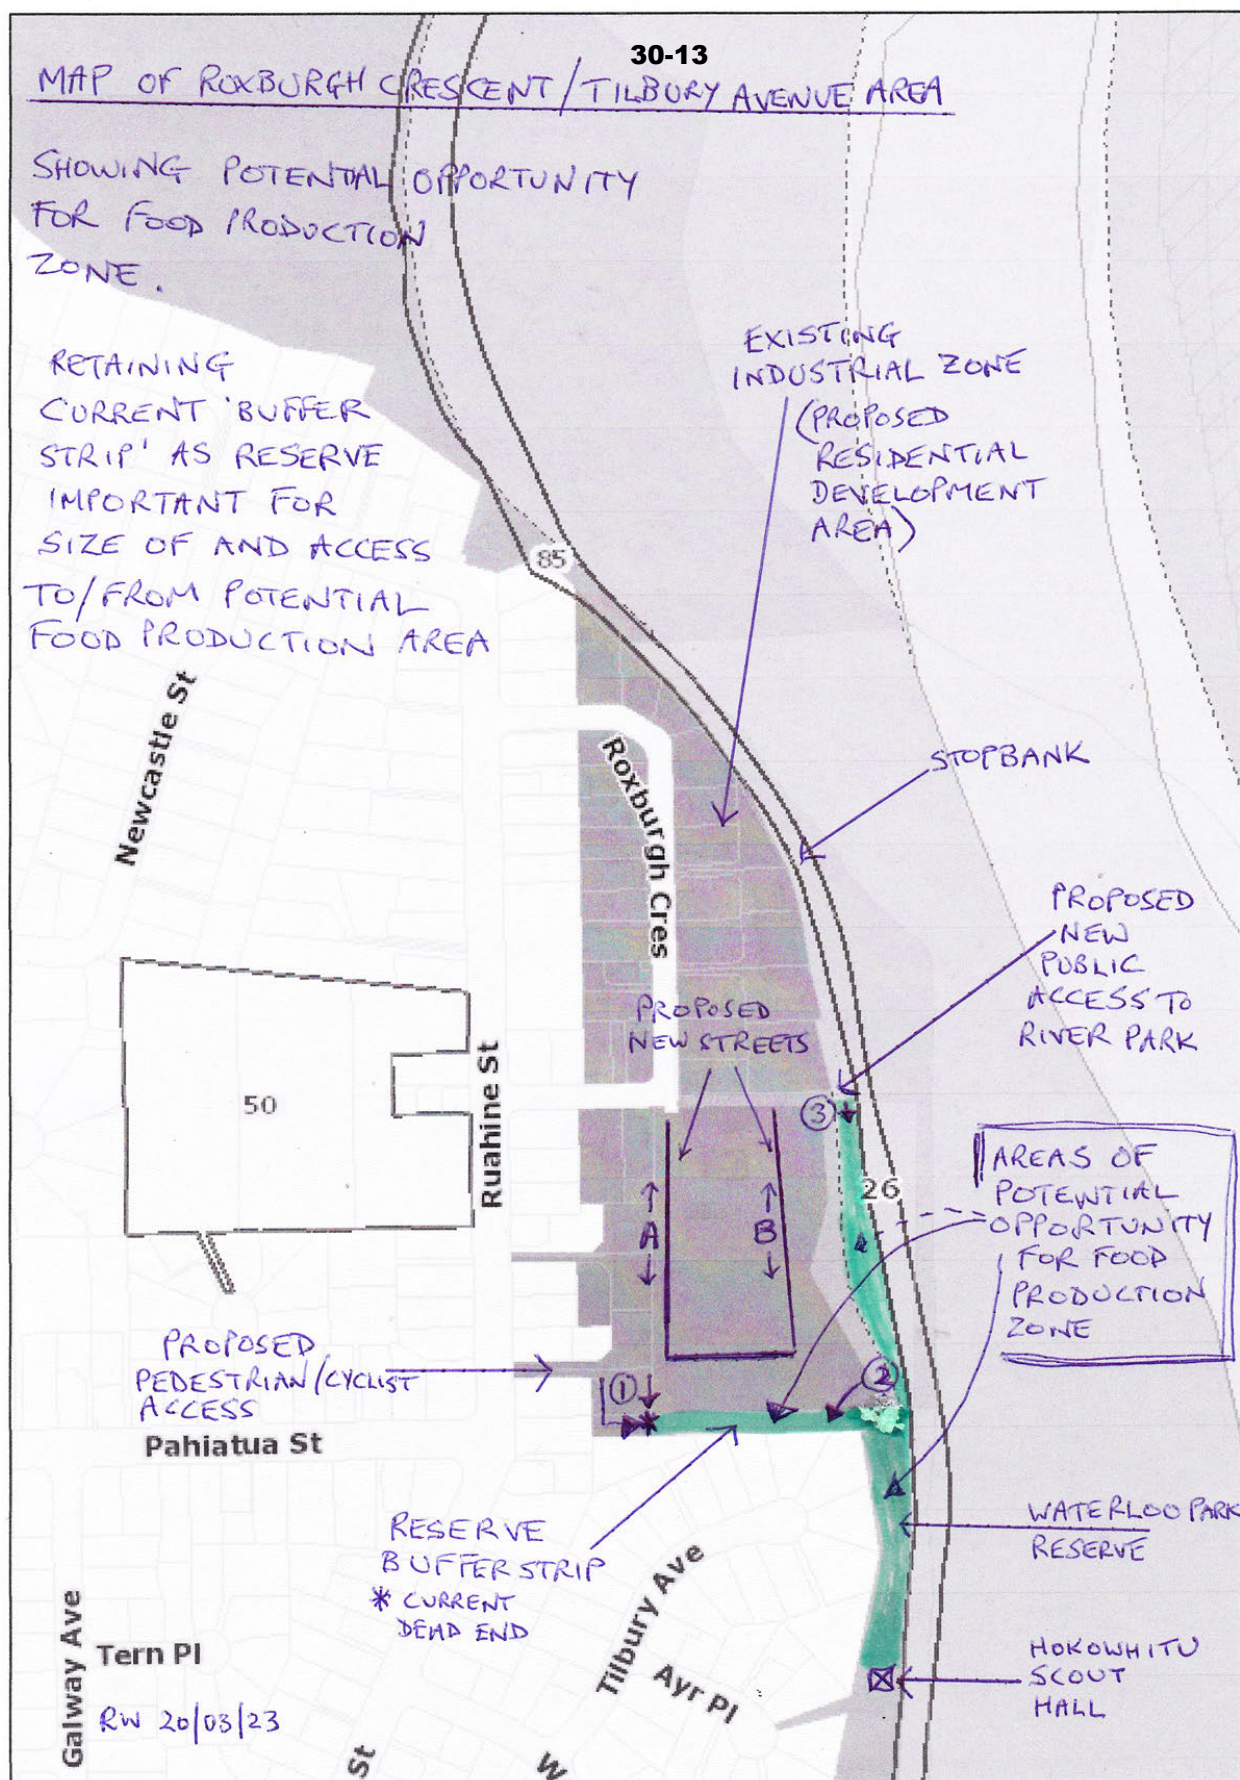 30-13
MAP OF ROXBURGH CRESCENT/TILBURY AVENUE AREA
SHOWING POTENTIAL OPPORTUNITY
FOR FOOD PRODUCTION
ZONE.
RETAINING
CURRENT 'BUFFER
STRIP' AS RESERVE
IMPORTANT FOR
SIZE OF AND ACCESS
TO/FROM POTENTIAL
FOOD PRODUCTION AREA
EXISTING
INDUSTRIAL ZONE
(PROPOSED
RESIDENTIAL
DEVELOPMENT
AREA)
85
Newcastle St
Roxburgh Cres
STOPBANK
PROPOSED
NEW
PUBLIC
ACCESS TO
RIVER PARK
PROPOSED
NEW STREETS
50
Ruahine St
3
26
A
B
AREAS OF
POTENTIAL
OPPORTUNITY
FOR FOOD
PRODUCTION
ZONE
PROPOSED
PEDESTRIAN/CYCLIST
ACCESS
1
2
Pahiatua St
RESERVE
BUFFER STRIP
* CURRENT
DEAD END
WATERLOO PARK
RESERVE
Tilbury Ave
Ayr Pl
HOKOWHITU
SCOUT
HALL
Galway Ave
Tern Pl
RW 20/03/23
St
W